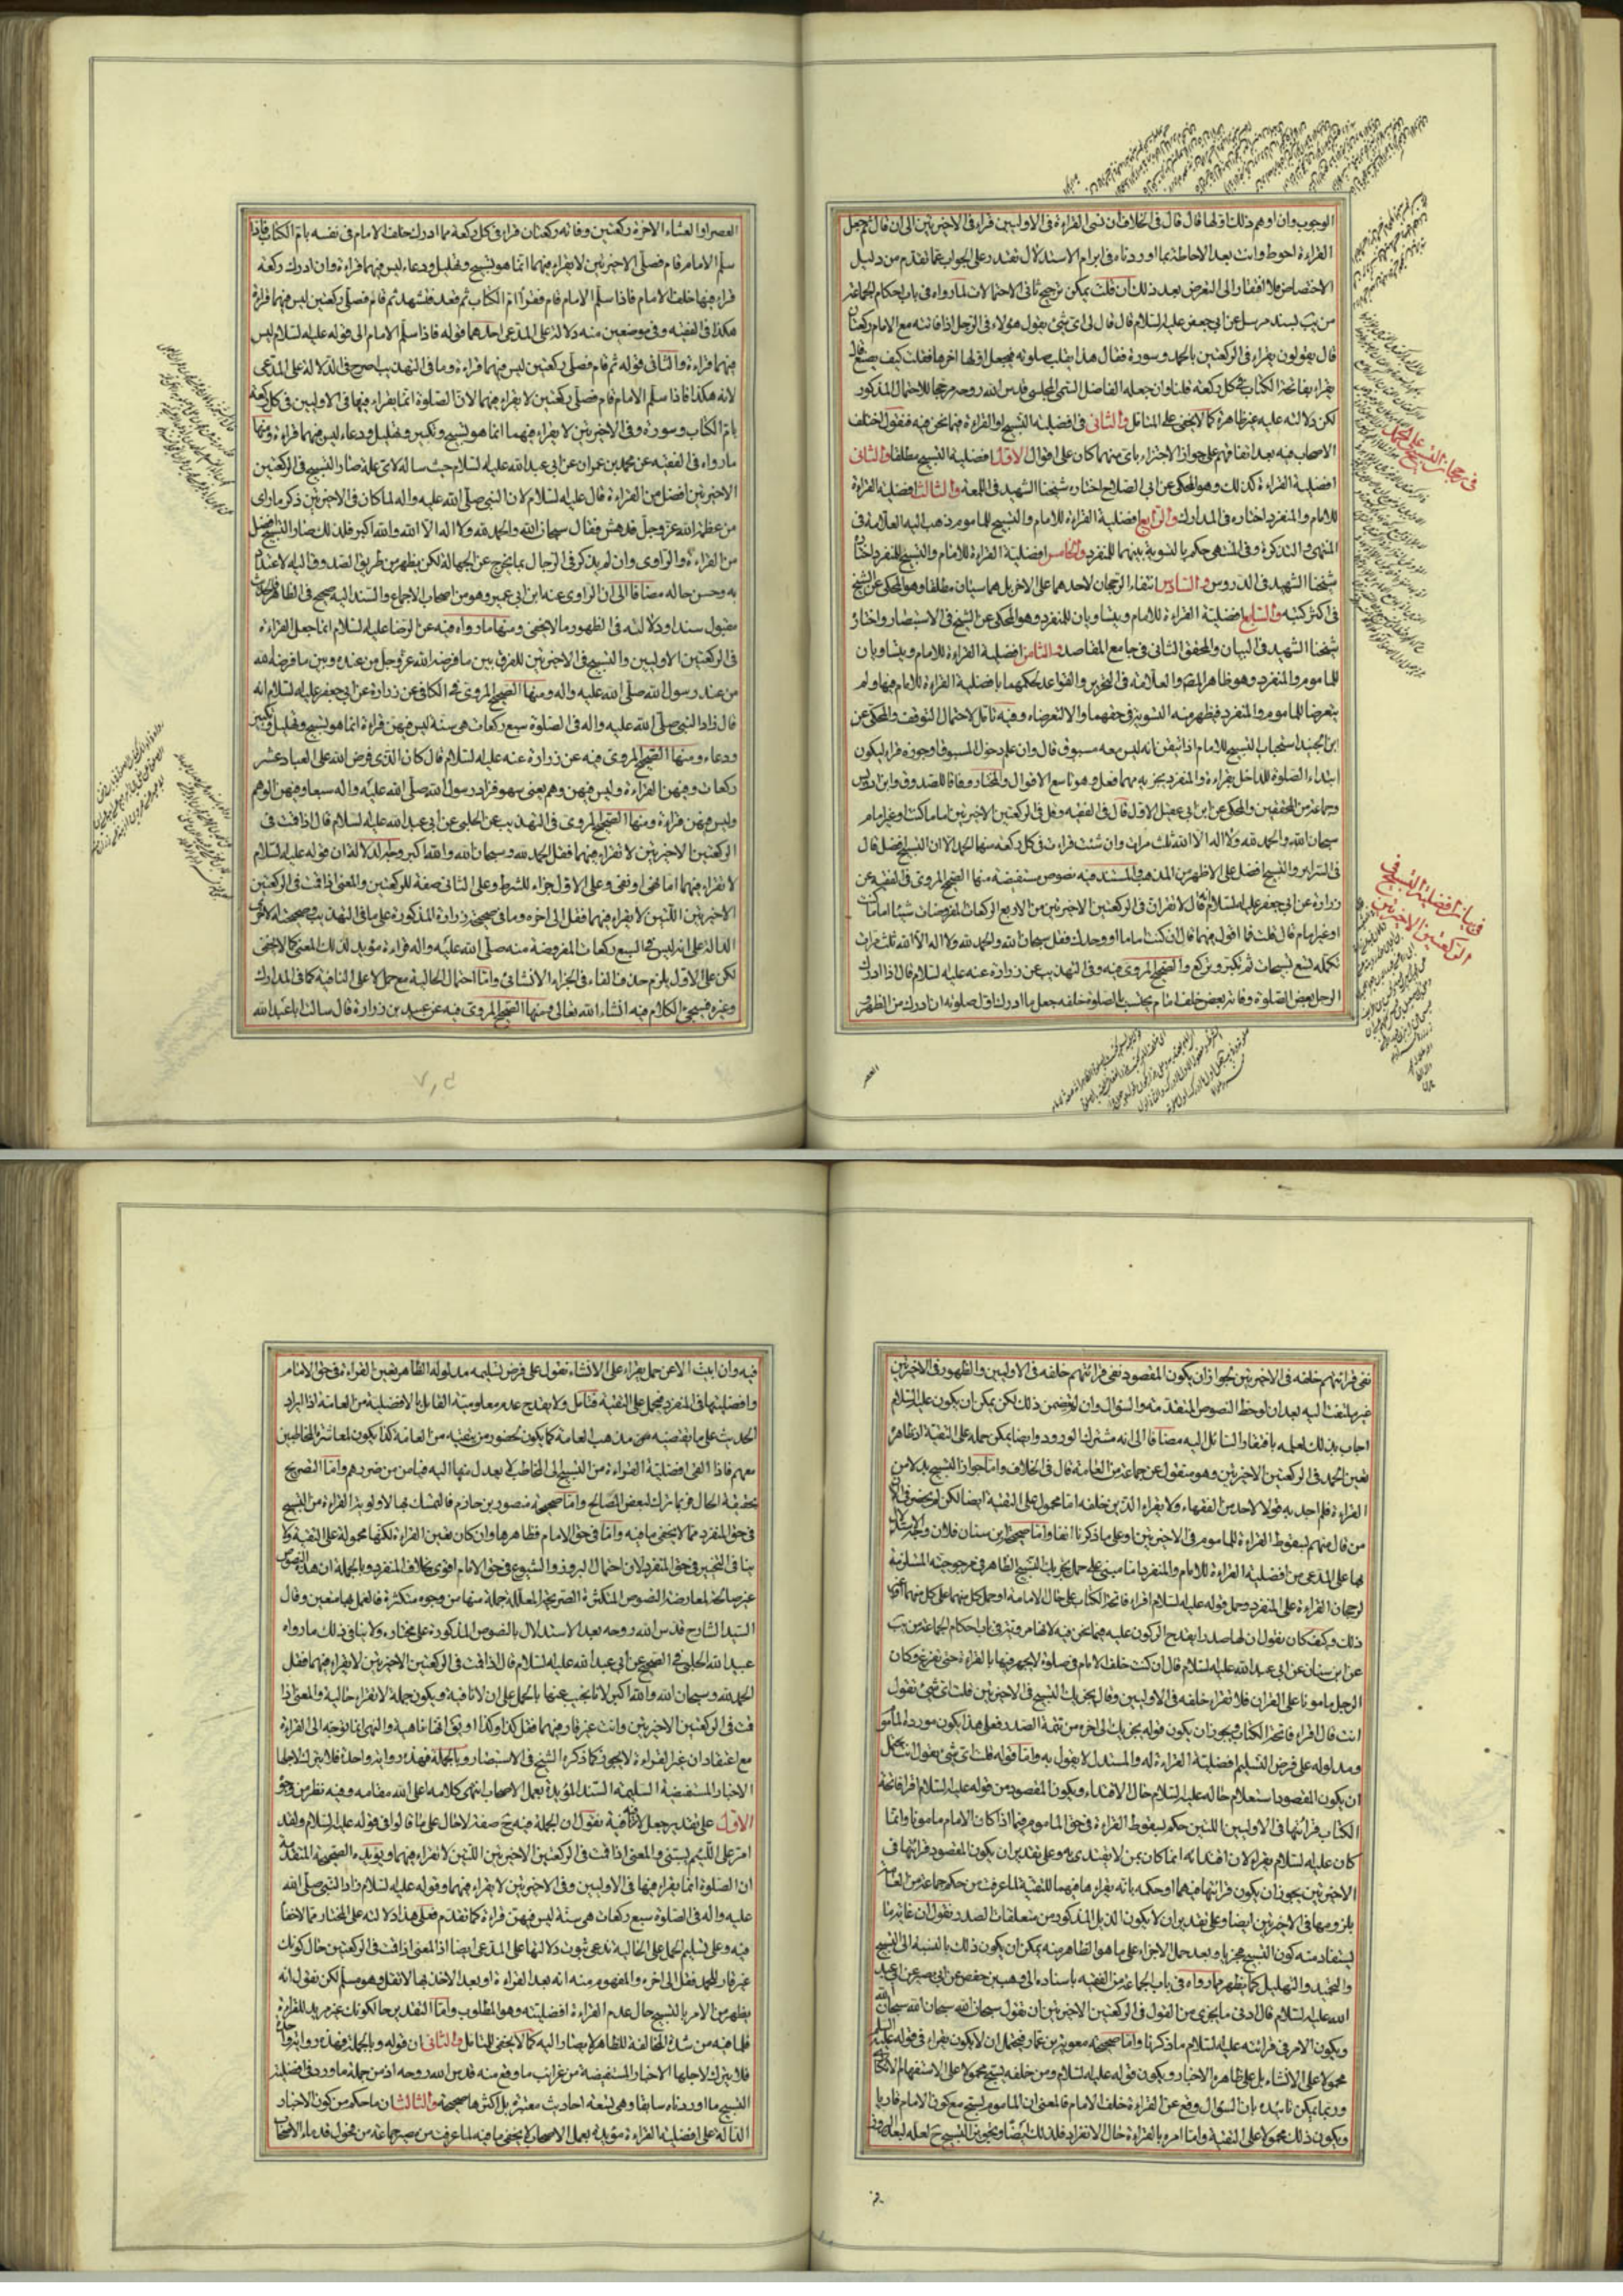 الوجوب وان اوهم ذلك اولها قال قال فى الخلاف ان نسى القراءة فى الاوليين قراء فى الاخيرتين الى ان قال ثم جعل
القراءة احوط وانت بعد الاحاطة بما اوردناه فى ابرام الاستدلال تقتدر على الجواب عما تقدم من دليل
الاختصاص فلا افتقار الى التعرض بعد ذلك فان قلت يمكن ترجيح ثانى الاحتمالات لما رواه فى باب احكام الجماعة
من يب بسند مرسل عن ابى جعفر عليه السلام قال قال لى اى شئ يقول هؤلاء فى الرجل اذا فاتته مع الامام ركعتان
قال يقولون يقراء فى الركعتين بالحمد وسورة فقال هذا يقلب صلوته فيجعل اولها اخرها فقلت كيف يصنع قال
يقراء بفاتحة الكتاب فى كل ركعة قلنا وان جعله الفاضل التقى المجلسى قدس الله روحه مرجحا للاحتمال المذكور
لكن دلالته عليه غير ظاهرة كما لا يخفى على المتامل والثانى فى افضلية التسبيح او القراءة فيما نحن فيه فنقول اختلف
الاصحاب فيه بعد اتفاقهم على جواز الاجتزاء باى منهما كان على اقوال الاول افضلية التسبيح مطلقا والثانى
افضلية القراءة كذلك وهو المحكى عن ابى الصلاح اختاره شيخنا الشهيد فى اللمعة والثالث افضلية القراءة
للامام والمنفرد اختاره فى المدارك والرابع افضلية القراءة للامام والتسبيح للماموم ذهب اليه العلامة فى
المنتهى والتذكرة وفى المنتهى حكم بالتسوية بينهما للمنفرد والخامس افضلية القراءة للامام والتسبيح للمنفرد اختاره
شيخنا الشهيد فى الدروس والسادس انتفاء الرجحان لاحدهما على الاخر بل هما سيان مطلقا وهو المحكى عن الشيخ
فى اكثر كتبه والسابع افضلية القراءة للامام ويتساويان للمنفرد وهو المحكى عن الشيخ فى الاستبصار واختاره
شيخنا الشهيد فى البيان والمحقق الثانى فى جامع المقاصد والثامن افضلية القراءة للامام ويتساويان
للماموم والمنفرد وهو ظاهر المصـ والعلامة فى التحرير والقواعد لحكمهما بافضلية القراءة للامام فيها ولم
يتعرضا للماموم والمنفرد فيظهر منه التسوية فى حقهما والا لتعرضاه وفيه تامل لاحتمال التوقف والمحكى عن
ابن الجنيد استحباب التسبيح للامام اذا تيقن انه ليس معه مسبوق قال وان علم دخول المسبوق او جوزه قراء ليكون
ابتداء الصلوة للداخل بقراءة والمنفرد يجزيه مهما فعل وهو تاسع الاقوال والمختار وفاقا للصدوق وابن ادريس
وجماعة من المحققين والمحكى عن ابن ابى عقيل الاول قال فى الفقيه وقل فى الركعتين الاخيرتين اماما كنت او غير امام
سبحان الله والحمد لله ولا اله الا الله ثلث مرات وان شئت قرات فى كل ركعة منها الحمد الا ان التسبيح افضل قال
فى السرائر والتسبيح افضل على الاظهر من المذهب والمستند فيه نصوص مستفيضة منها الصحيح المروى فى الفقيه عن
زرارة عن ابى جعفر عليه السلام انه قال لا تقران فى الركعتين الاخيرتين من الاربع الركعات المفروضات شيئا اماما كنت
او غير امام قال قلت فما اقول فيهما قال ان كنت اماما او وحدك فقل سبحان الله والحمد لله ولا اله الا الله ثلث مرات
تكمله تسع تسبيحات ثم تكبر وتركع والصحيح المروى فيه وفى التهذيب عن زرارة عنه عليه السلام قال اذا ادرك
الرجل بعض الصلوة وفاته بعض خلف امام يحتسب بالصلوة خلفه جعل ما ادرك اول صلوته ان ادرك من الظهر او
فى رجحان التسبيح على الحمد
فى بيان افضلية التسبيح فى
الركعتين الاخيرتين
العصر
العصر او العشاء الاخرة ركعتين وفاته ركعتان قراء فى كل ركعة مما ادرك خلف الامام فى نفسه بام الكتاب فاذا
سلم الامام قام فصلى الاخيرتين لا يقراء فيهما انما هو تسبيح وتهليل ودعاء ليس فيهما قراءة وان ادرك ركعة
قراء فيها خلف الامام فاذا سلم الامام قام فقرا ام الكتاب ثم قعد فتشهد ثم قام فصلى ركعتين ليس فيهما قراءة
هكذا فى الفقيه وفى موضعين منه دلالة على المدعى احدهما قوله فاذا سلم الامام الى قوله عليه السلام ليس
فيهما قراءة والثانى قوله ثم قام فصلى ركعتين ليس فيهما قراءة وما فى التهذيب اصرح فى الدلالة على المدعى
لانه هكذا فاذا سلم الامام قام فصلى ركعتين لا يقراء فيهما لان الصلوة انما يقراء فيها فى الاوليين فى كل ركعة
بام الكتاب وسورة وفى الاخيرتين لا يقراء فيهما انما هو تسبيح وتكبير وتهليل ودعاء ليس فيهما قراءة ومنها
ما رواه فى الفقيه عن محمد بن عمران عن ابى عبد الله عليه السلام حيث ساله لاى علة صار التسبيح فى الركعتين
الاخيرتين افضل من القراءة قال عليه السلام لان النبى صلى الله عليه واله لما كان فى الاخيرتين ذكر ما راى
من عظمة الله عز وجل فدهش فقال سبحان الله والحمد لله ولا اله الا الله والله اكبر فلذلك صار التسبيح افضل
من القراءة والراوى وان لم يذكر فى الرجال بما يخرج عن الجهالة لكن يظهر من طريق الصدوق اليه لاعتداد
به وحسن حاله مضافا الى ان الراوى عنه ابن ابى عمير وهو من اصحاب الاجماع والسند اليه صحيح فى الظاهر فالحديث
مقبول سندا ودلالته فى الظهور ما لا يخفى ومنها ما رواه فيه عن الرضا عليه السلام انما جعل القراءة
فى الركعتين الاوليين والتسبيح فى الاخيرتين للفرق بين ما فرضه الله عز وجل من عنده وبين ما فرضه الله
من عند رسول الله صلى الله عليه واله ومنها الصحيح المروى فى الكافى عن زرارة عن ابى جعفر عليه السلام انه
قال زاد النبى صلى الله عليه واله فى الصلوة سبع ركعات هى سنة ليس فيهن قراءة انما هو تسبيح وتهليل وتكبير
ودعاء ومنها الصحيح المروى فيه عن زرارة عنه عليه السلام قال كان الذى فرض الله على العباد عشر
ركعات وفيهن القراءة وليس فيهن وهم يعنى سهو فزاد رسول الله صلى الله عليه واله سبعا وفيهن الوهم
وليس فيهن قراءة ومنها الصحيح المروى فى التهذيب عن الحلبى عن ابى عبد الله عليه السلام قال اذا قمت فى
الركعتين الاخيرتين لا تقراء فيهما فقل الحمد لله وسبحان الله والله اكبر وجه الدلالة ان قوله عليه السلام
لا تقراء فيهما اما نهى او نفى وعلى الاول جزاء للشرط وعلى الثانى صفة للركعتين والمعنى اذا قمت فى الركعتين
الاخيرتين اللتين لا يقراء فيهما فقل الى اخره وما فى صحيحة زرارة المذكورة على ما فى التهذيب وصحيحته الاخرى
الدالة على انه ليس فى السبع ركعات المفروضة منه صلى الله عليه واله قراءة مؤيد لذلك المعنى كما لا يخفى
لكن على الاول يلزم حذف الفاء فى الجزاء الانشائى واما احتمال الحالية مع حمل لا على النافية كما فى المدارك
وغيره فسيجئ الكلام فيه انشاء الله تعالى ومنها الصحيح المروى فيه عن عبيد بن زرارة قال سالت ابا عبد الله
نفى قرائتهم خلفه فى الاخيرتين لجواز ان يكون المقصود نفى قرائتهم خلفه فى الاوليين والظهور فى الاخيرتين
غير ملتفت اليه بعد ان لوحظ النصوص المتقدمة والسؤال وان لم يتضمن ذلك لكن يمكن ان يكون عليه السلام
اجاب بذلك لعلمه بافتقار السائل اليه مضافا الى انه مشترك الورود وايضا يمكن حمله على التقية اذ ظاهره
تعين الحمد فى الركعتين الاخيرتين وهو منقول عن جماعة من العامة قال فى الخلاف واما جواز التسبيح بدلا من
القراءة فلم اجد به قولا لاحد من الفقهاء ولا يقراء الذين خلفه اما محمول على التقية ايضا لكن
من قال منهم بسقوط القراءة للماموم فى الاخيرتين او على ما ذكرنا انفا واما صحيحة ابن سنان فلان وجه الاستدلال
بها على المدعى من افضلية القراءة للامام والمنفرد انما مبنى على حمل يجزيك التسبيح الظاهر فى مرجوحيته المستلزمة
لرجحان القراءة على المنفرد وحمل قوله عليه السلام اقراء فاتحة الكتاب على حال الامامة او حمل كل منهما على كل منهما
ذلك وكيف كان نقول ان لها صدرا يقدح الركون عليه فيما نحن فيه لانها مروية فى باب احكام الجماعة من يب
عن ابن سنان عن ابى عبد الله عليه السلام قال ان كنت خلف الامام فى صلوة لا يجهر فيها بالقراءة حتى يفرغ وكان
الرجل مامونا على القران فلا تقراء خلفه فى الاوليين وقال يجزيك التسبيح فى الاخيرتين قلت اى شئ تقول
انت قال اقراء فاتحة الكتاب ويجوز ان يكون قوله يجزيك الى اخره من تتمة الصدر فعلى هذا يكون مورده الماموم
ومدلوله على فرض التسليم افضلية القراءة له والمستدل لا يقول به واما قوله قلت اى شئ تقول انت يحتمل
ان يكون المقصود استعلام حاله عليه السلام حال الاقتداء ويكون المقصود من قوله عليه السلام اقرا فاتحة
الكتاب قرائتها فى الاوليين اللتين حكم بسقوط القراءة فى حق الماموم فيما اذا كان الامام مامونا وانما
كان عليه السلام يقراء لان اقتدائه انما كان بمن لا يقتدى به وعلى تقدير ان يكون المقصود قرائتها فى
الاخيرتين يجوز ان يكون قرائتها فيهما او حكمه بانه يقراءها فيهما للتقية لما عرفت من حكم جماعة من العامة
بلزومها فى الاخيرتين ايضا وعلى تقدير ان لا يكون الذيل المذكور من متعلقات الصدر نقول ان غاية ما
يستفاد منه كون التسبيح مجزيا وبعد حمل الاجزاء على ما هو الظاهر منه يمكن ان يكون ذلك بالنسبة الى التسبيح
والتحميد والتهليل كما يظهر مما رواه فى باب الجماعة من الفقيه باسناده الى وهيب بن حفص عن ابى بصير عن ابى عبد
الله عليه السلام قال ادنى ما يجزى من القول فى الركعتين الاخيرتين ان تقول سبحان الله سبحان الله سبحان الله
ويكون الامر فى قرائته عليه السلام ما ذكرنا واما صحيحة معوية بن عمار فيحتمل ان لا يكون يقراء فى قوله عليه السلام
محمولا على الانشاء بل على ظاهره الاخبار ويكون قوله عليه السلام ومن خلفه يسبح محمولا على الاستفهام الانكارى
وربما يمكن تاييده بان السؤال وقع عن القراءة خلف الامام فالمعنى ان الماموم يسبح مع كون الامام قاريا
ويكون ذلك محمولا على التقية واما امره بالقراءة حال الانفراد فلذلك ايضا وتجويز التسبيح ح لعله لبعد
فيه وان ابيت الا عن حمل يقراء على الانشاء نقول على فرض تسليمه مدلوله الظاهر تعين القراءة فى حق الامام
وافضليتها فى المنفرد فيحمل على التقية فتامل ولا يقدح عدم معلومية القائل بالافضلية من العامة اذ ايراد
الحديث على ما يقتضيه من مذهب العامة كما يكون لحضور من يتقيه من العامة كذا يكون لمعاشرة المخاطبين
معهم فاذا القى افضلية القراءة من التسبيح الى المخاطب لا يعدل منها اليه فيامن من ضررهم واما التصريح
بحقيقة الحال فربما ترك لبعض المصالح واما صحيحة منصور بن حازم فالتمسك بها لاولوية القراءة من التسبيح
فى حق المنفرد مما لا يخفى ما فيه واما فى حق الامام فظاهرها وان كان تعين القراءة لكنها محمولة على التقية ولا
ينافى التخيير فى حق المنفرد لان احتمال البروز والشيوع فى حق الامام اقوى بخلاف المنفرد وبالجملة ان هذه النصوص
غير صالحة لمعارضة النصوص المتكثرة الصريحة المعللة جملة منها من وجوه متكثرة فالعمل بها متعين وقال
السيد الشارح قدس الله روحه بعد الاستدلال بالنصوص المذكورة على مختاره ولا ينافى ذلك ما رواه
عبيد الله الحلبى فى الصحيح عن ابى عبد الله عليه السلام قال اذا قمت فى الركعتين الاخيرتين لا تقراء فيهما فقل
الحمد لله وسبحان الله والله اكبر لانا نجيب عنها بالحمل على ان لا نافية ويكون جملة لا تقراء حالية والمعنى اذا
قمت فى الركعتين الاخيرتين وانت غير قار فيهما فقل كذا وكذا او بقى انها ناهية والنهى انما توجه الى القراءة
مع اعتقاد ان غير القراءة لا يجوز كما ذكره الشيخ فى الاستبصار وبالجملة فهذه رواية واحدة فلا يترك لاجلها
الاخبار المستفيضة السليمة السند المؤيدة بعمل الاصحاب انتهى كلامه اعلى الله مقامه وفيه نظر من وجوه
الاول على تقدير جعل لا نافية نقول ان الجملة فيه ح صفة لا حال على ما قالوا فى قوله عليه السلام ولقد
امر على اللئيم يسبنى والمعنى اذا قمت فى الركعتين الاخيرتين اللتين لا تقراء فيهما ويؤيده الصحيحة المتقدمة
ان الصلوة انما يقراء فيها فى الاوليين وفى الاخيرتين لا يقراء فيهما وقوله عليه السلام زاد النبى صلى الله
عليه واله فى الصلوة سبع ركعات هى سنة ليس فيهن قراءة كما تقدم فعلى هذا دلالته على المختار مما لا خفاء
فيه وعلى تسليم الحمل على الحالية ندعى ثبوت دلالتها على المدعى ايضا اذ المعنى اذا قمت فى الركعتين حال كونك
غير قار للحمد فقل الى اخره والمفهوم منه انه بعد القراءة او بعد الاخذ بها لا تقل وهو مسلم لكن نقول انه
يظهر من الامر بالتسبيح حال عدم القراءة افضليته وهو المطلوب واما التقدير حالكونك غير مريد للقراءة
فلما فيه من شدة المخالفة للظاهر لا يصار اليه كما لا يخفى للمتامل والثانى ان قوله وبالجملة فهذه رواية واحدة
فلا يترك لاجلها الاخبار المستفيضة من غرائب ما وقع منه قدس الله روحه اذ من جملة ما ورد فى افضلية
التسبيح ما اوردناه سابقا وهى تسعة احاديث معتبرة بل اكثرها صحيحة والثالث ان ما حكم من كون الاخبار
الدالة على افضلية القراءة مؤيدة بعمل الاصحاب لا يخفى ما فيه لما عرفت من مصير جماعة من فحول قدماء الاصحاب